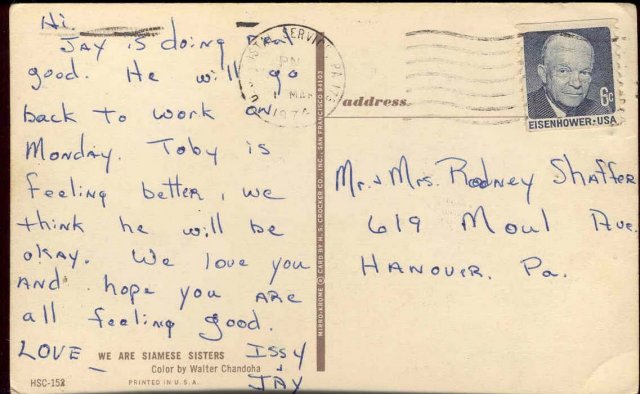 Hi.
JAY is doing real
good. He will go
back to work on
Monday. Toby is
feeling better, we
think he will be
okay. We love you
AND hope you ARE
all feeling good.
LOVE
ISSY
+
JAY
WE ARE SIAMESE SISTERS
Color by Walter Chandoha
HSC-152
PRINTED IN U.S.A.
MIRRO-KROME © CARD BY H. S. CROCKER CO., INC., SAN FRANCISCO
SERVICE, PA
PM
MAR
address
6c
EISENHOWER·USA
Mr. + Mrs. Rodney Shaffer
619 Moul Ave.
HANOVER. Pa.